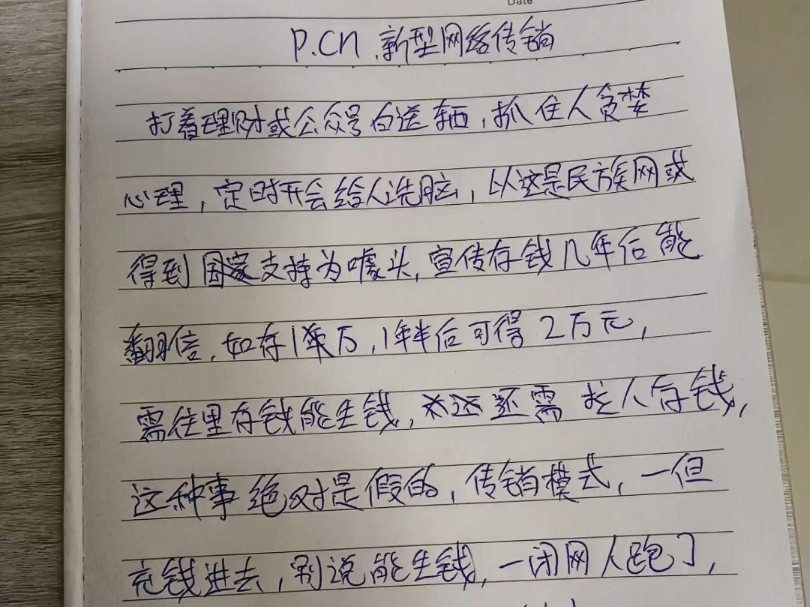 Date
P.cn 新型网络传销
打着理财或公众号白送辆，抓住人贪婪
心理，定时开会给人洗脑，以这是民族网或
得到国家支持为噱头，宣传存钱几年后能
翻倍，如存1万，1年半后可得2万元，
需往里存钱能生钱，还需拉人存钱，
这种事绝对是假的，传销模式，一但
充钱进去，别说能生钱，一闭网人跑了，